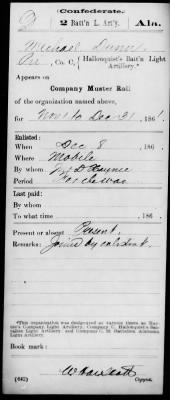 Confederate.
D 2 Batt'n L. Art'y. Ala.
Michael Dunn
Pvt, Co. C, Hallonquist's Batt'n Light Artillery.*
Appears on
Company Muster Roll
of the organization named above,
for Nov 1 to Dec 31, 186 .
Enlisted:
When Dec 8, 186 .
Where Mobile
By whom
Period For the war
Last paid:
By whom
To what time , 186 .
Present or absent Present.
Remarks: Joined by enlistment.
*This organization was designated at various times as
Company Light Artillery; Company C, Hallonquist's
Light Artillery; and Company C, 2d Battalion, Alabama
Light Artillery.
Book mark:
(642) Copyist.